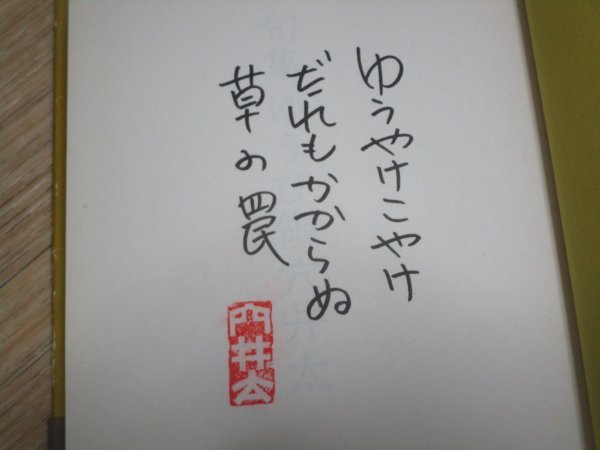 ゆうやけこやけ
だれもかからぬ
草の罠
穴井太